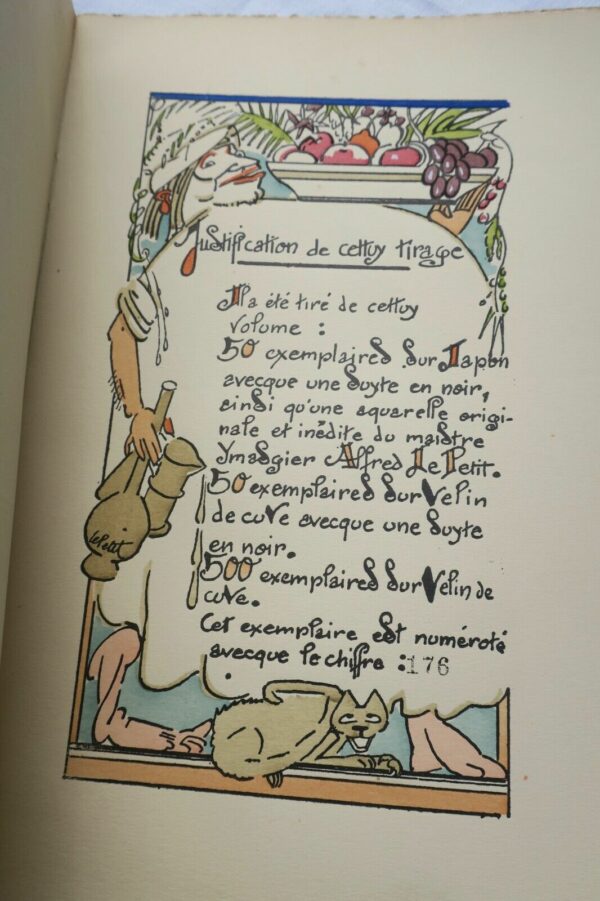 Justification de cettuy tirage
Il a été tiré de cettuy
volume :
50 exemplaires sur Japon
avecque une suyte en noir,
ainsi qu'une aquarelle origi-
nale et inédite du maistre
Ymasgier Alfred Le Petit.
50 exemplaires sur Velin
de cuve avecque une suyte
en noir.
500 exemplaires sur Velin de
cuve.
Cet exemplaire est numéroté
avecque le chiffre : 176
lePetit